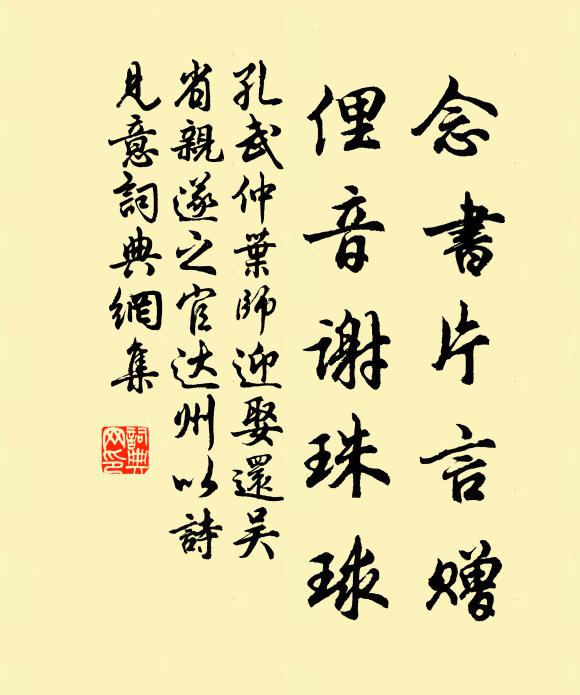 念書片言贈
俚音謝珠球
孔武仲葉師迎娶還吴
省親遂之官达州以詩
見意詞典網集
詞典
网印